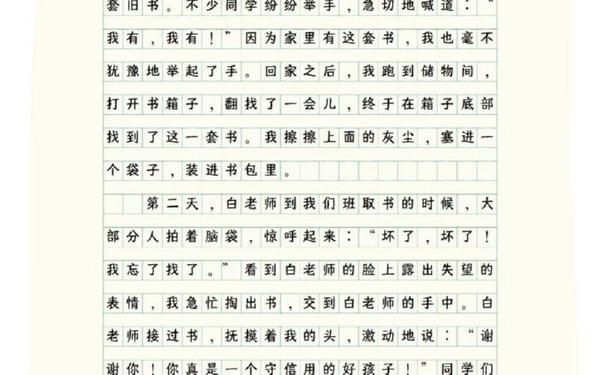 套旧书。不少同学纷纷举手，急切地喊道：“
我有，我有！”因为家里有这套书，我也毫不
犹豫地举起了手。回家之后，我跑到储物间，
打开书箱子，翻找了一会儿，终于在箱子底部
找到了这一套书。我擦擦上面的灰尘，塞进一
个袋子，装进书包里。
第二天，白老师到我们班取书的时候，大
部分人拍着脑袋，惊呼起来：“坏了，坏了！
我忘了找了。”看到白老师的脸上露出失望的
表情，我急忙掏出书，交到白老师的手中。白
老师接过书，抚摸着我的头，激动地说：“谢
谢你！你真是一个守信用的好孩子！”同学们